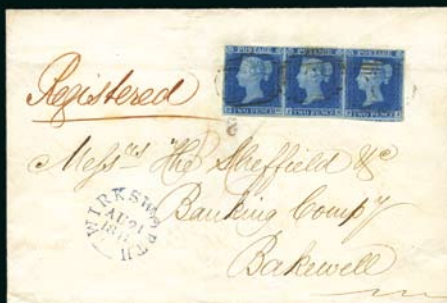 POSTAGE POSTAGE POSTAGE
TWO PENCE TWO PENCE TWO PENCE
Registered
Messrs The Sheffield &c
Banking Compy
Bakewell
WIRKSWORTH
AU 21